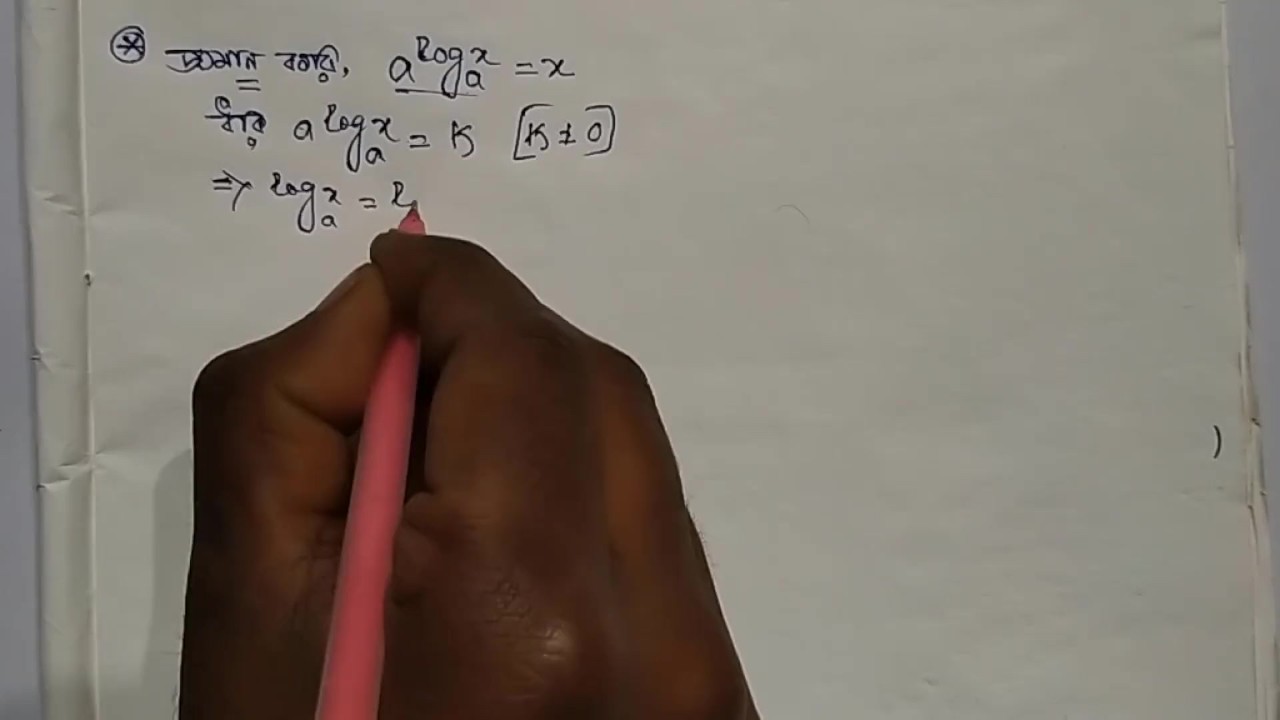 ⊛ প্রমান করি, a^log_a^x = x
ধরি a^log_a^x = K [K ≠ 0]
⇒ log_a^x = l
)